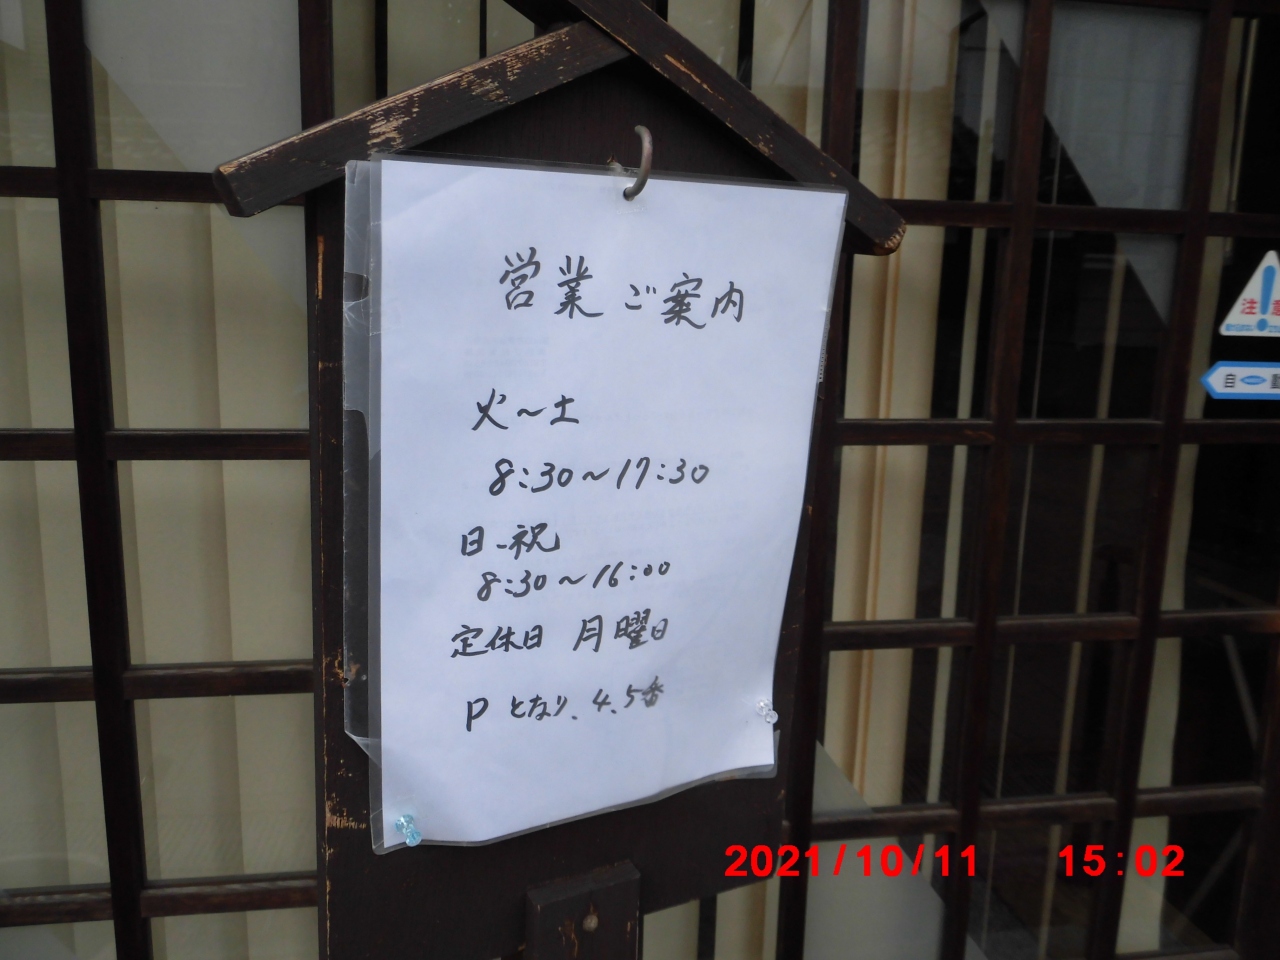 営業ご案内
火～土
8:30～17:30
日-祝
8:30～16:00
定休日 月曜日
P となり、4、5番
注意
自動
2021/10/11 15:02